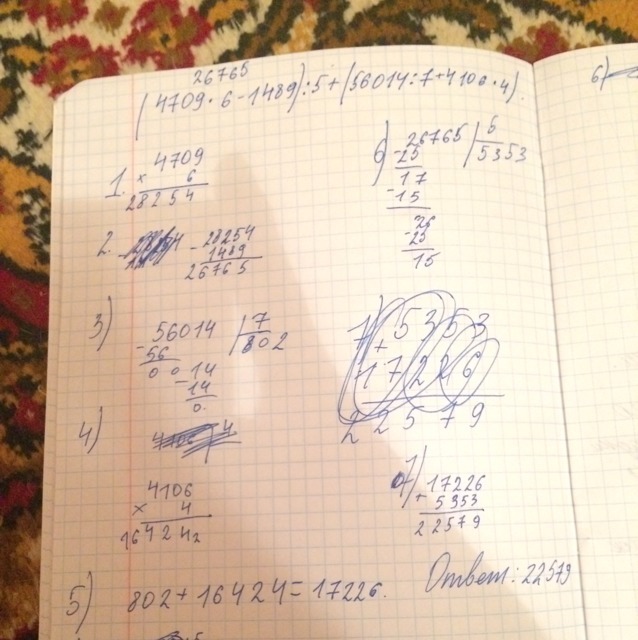 26765
(4709·6-1489):5+(56014:7+4106·4).
1. 4709
× 6
28254
2. - 28254
1489
26765
3) - 56014 | 7
56 802
0 0 14
- 14
0.
4)
4106
× 4
16424
5) 802+16424=17226.
6) 26765 | 5
- 25 5353
17
- 15
26
- 25
15
7) + 5353
17226
22579
7) + 17226
5353
22579
Ответ: 22579
6)